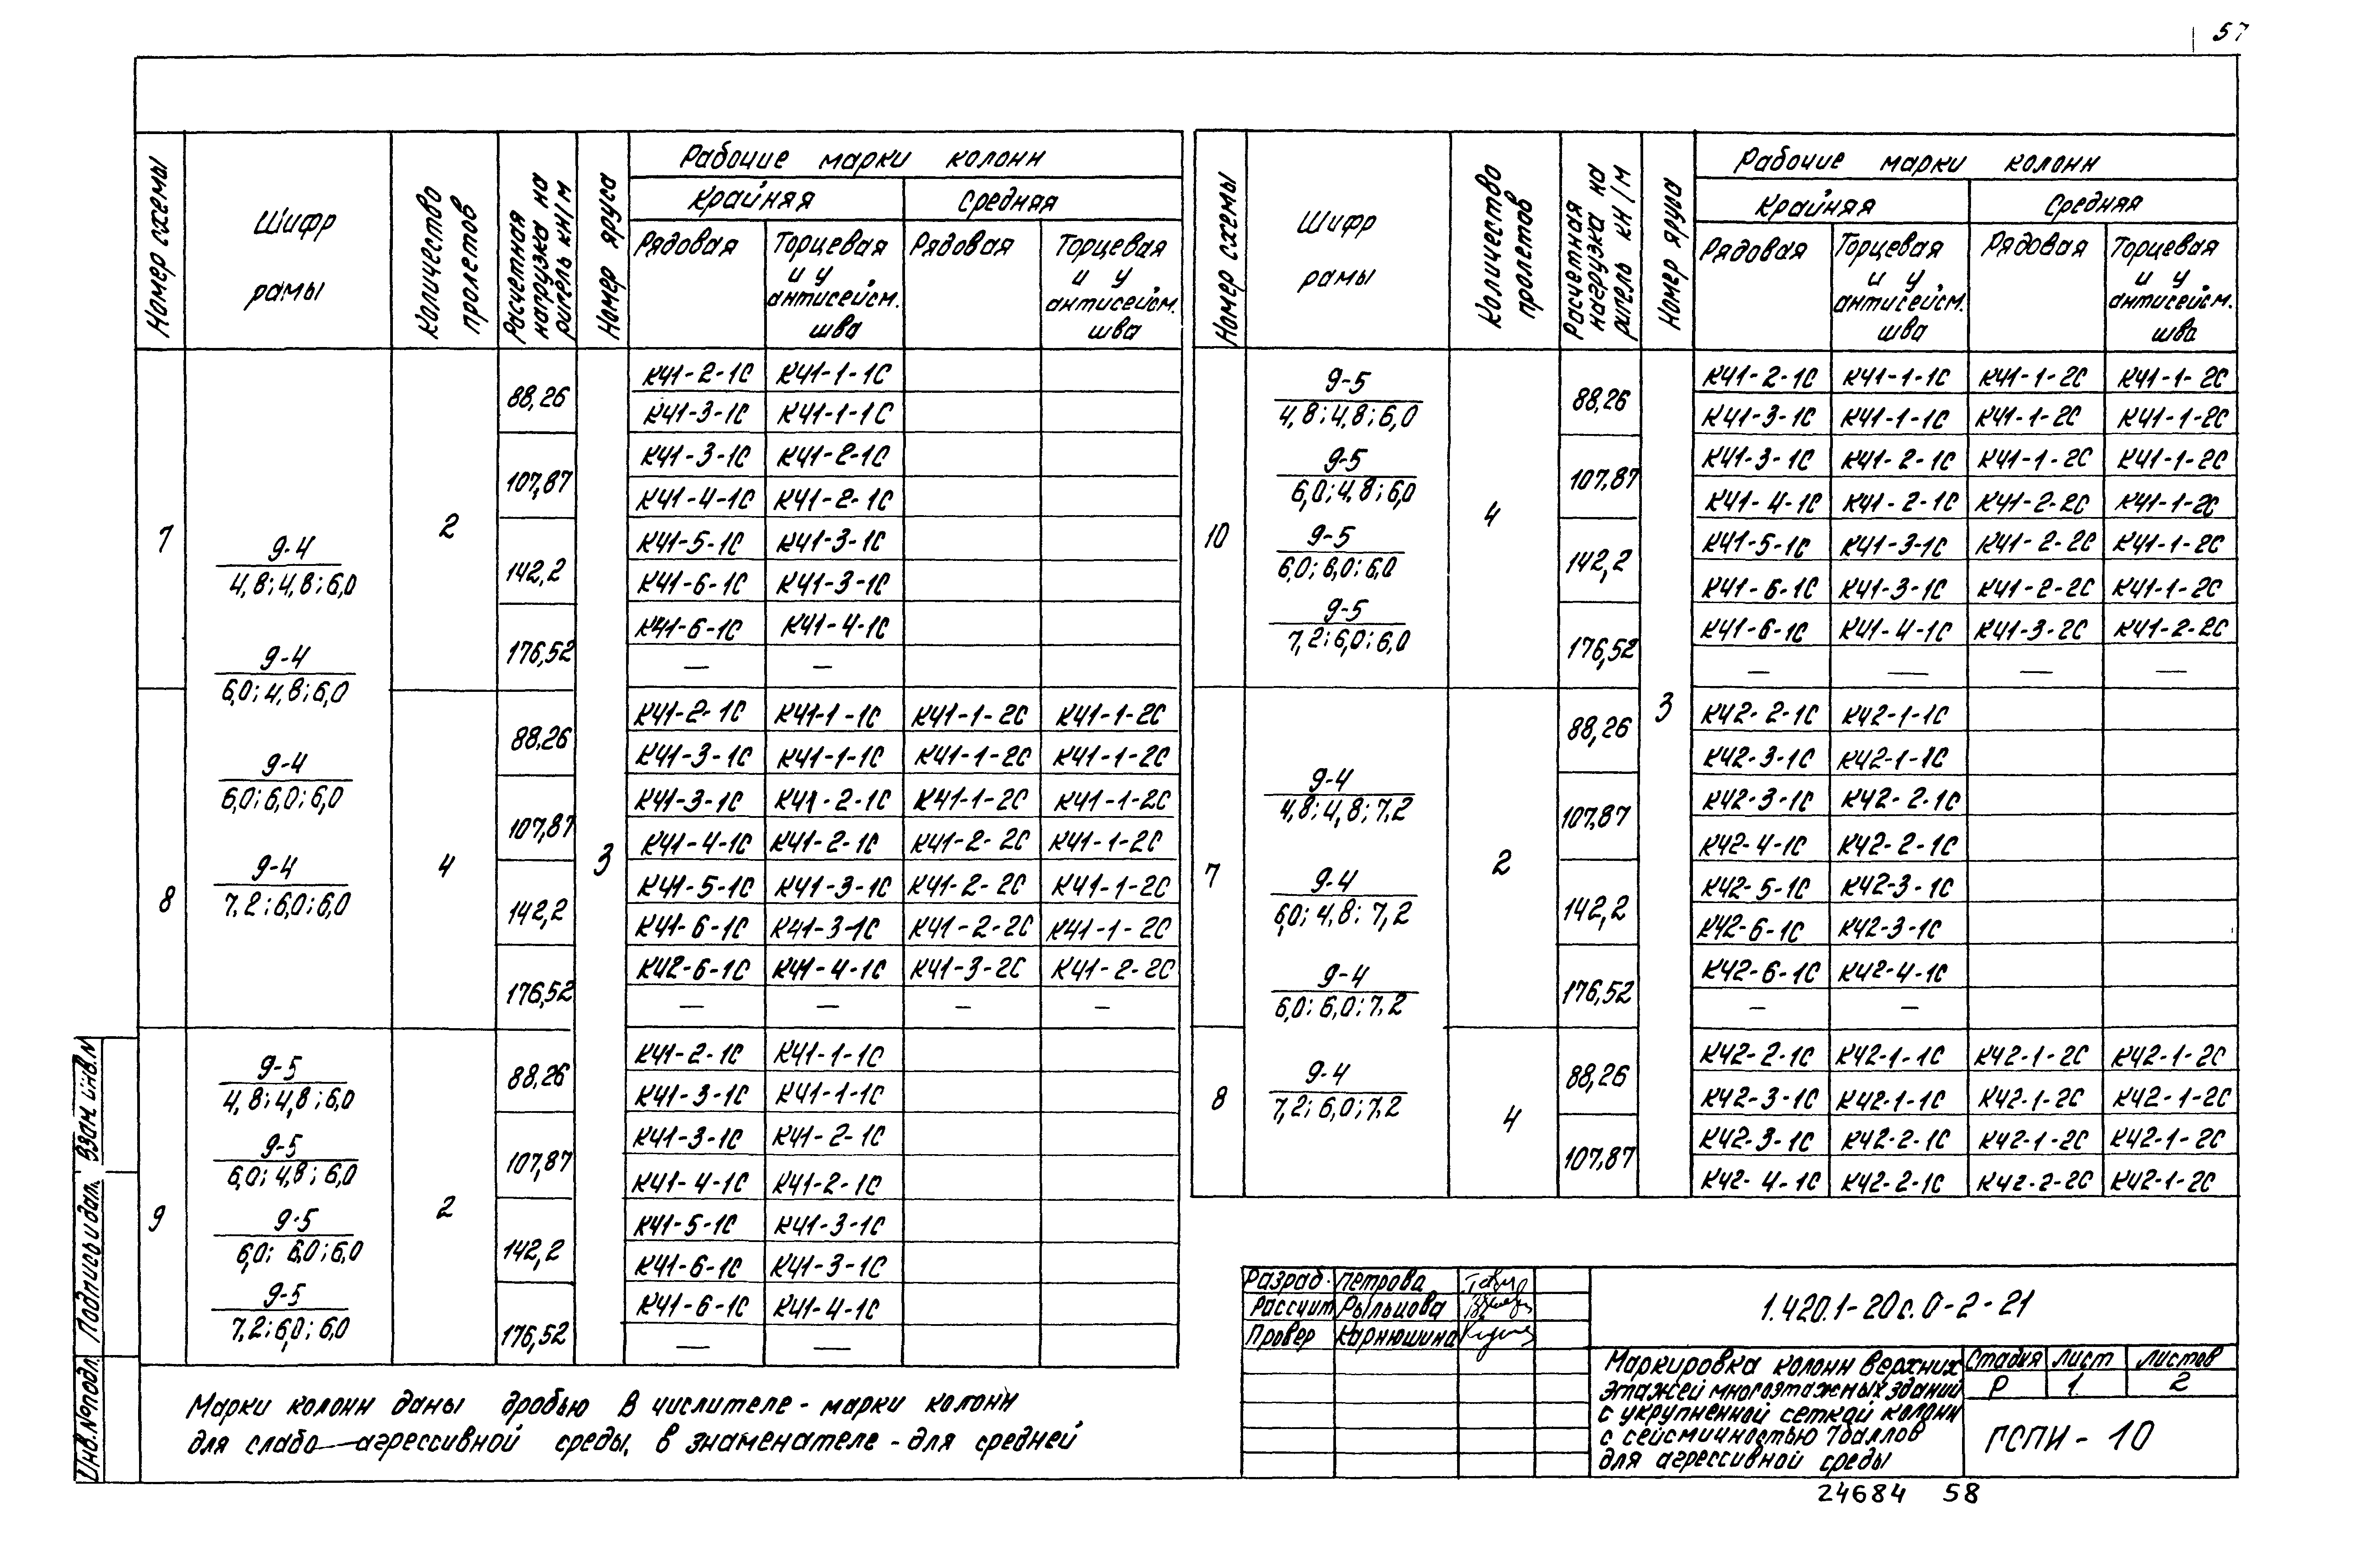 57
Номер схемы
Шифр рамы
Количество пролетов
Расчетная нагрузка на ригель кН/м
Номер яруса
Рабочие марки колонн
Крайняя
Средняя
Рядовая
Торцевая и у антисейсм. шва
Рядовая
Торцевая и у антисейсм. шва
7
9-4
4,8; 4,8; 6,0
9-4
6,0; 4,8; 6,0
9-4
6,0; 6,0; 6,0
9-4
7,2; 6,0; 6,0
2
3
88,26
К41-2-1С К41-1-1С
К41-3-1С К41-1-1С
107,87
К41-3-1С К41-2-1С
К41-4-1С К41-2-1С
142,2
К41-5-1С К41-3-1С
К41-6-1С К41-3-1С
176,52
К41-6-1С К41-4-1С
— —
8
4
88,26
К41-2-1С К41-1-1С К41-1-2С К41-1-2С
К41-3-1С К41-1-1С К41-1-2С К41-1-2С
107,87
К41-3-1С К41-2-1С К41-1-2С К41-1-2С
К41-4-1С К41-2-1С К41-2-2С К41-1-2С
142,2
К41-5-1С К41-3-1С К41-2-2С К41-1-2С
К41-6-1С К41-3-1С К41-2-2С К41-1-2С
176,52
К42-6-1С К41-4-1С К41-3-2С К41-2-2С
— — — —
9
9-5
4,8; 4,8; 6,0
9-5
6,0; 4,8; 6,0
9-5
6,0; 6,0; 6,0
9-5
7,2; 6,0; 6,0
2
88,26
К41-2-1С К41-1-1С
К41-3-1С К41-1-1С
107,87
К41-3-1С К41-2-1С
К41-4-1С К41-2-1С
142,2
К41-5-1С К41-3-1С
К41-6-1С К41-3-1С
176,52
К41-6-1С К41-4-1С
— —
Номер схемы
Шифр рамы
Количество пролетов
Расчетная нагрузка на ригель кН/м
Номер яруса
Рабочие марки колонн
Крайняя
Средняя
Рядовая
Торцевая и у антисейсм. шва
Рядовая
Торцевая и у антисейсм. шва
10
9-5
4,8; 4,8; 6,0
9-5
6,0; 4,8; 6,0
9-5
6,0; 6,0; 6,0
9-5
7,2; 6,0; 6,0
4
3
88,26
К41-2-1С К41-1-1С К41-1-2С К41-1-2С
К41-3-1С К41-1-1С К41-1-2С К41-1-2С
107,87
К41-3-1С К41-2-1С К41-1-2С К41-1-2С
К41-4-1С К41-2-1С К41-2-2С К41-1-2С
142,2
К41-5-1С К41-3-1С К41-2-2С К41-1-2С
К41-6-1С К41-3-1С К41-2-2С К41-1-2С
176,52
К41-6-1С К41-4-1С К41-3-2С К41-2-2С
— — — —
7
9-4
4,8; 4,8; 7,2
9-4
6,0; 4,8; 7,2
9-4
6,0; 6,0; 7,2
9-4
7,2; 6,0; 7,2
2
88,26
К42-2-1С К42-1-1С
К42-3-1С К42-1-1С
107,87
К42-3-1С К42-2-1С
К42-4-1С К42-2-1С
142,2
К42-5-1С К42-3-1С
К42-6-1С К42-3-1С
176,52
К42-6-1С К42-4-1С
— —
8
4
88,26
К42-2-1С К42-1-1С К42-1-2С К42-1-2С
К42-3-1С К42-1-1С К42-1-2С К42-1-2С
107,87
К42-3-1С К42-2-1С К42-1-2С К42-1-2С
К42-4-1С К42-2-1С К42-2-2С К42-1-2С
Марки колонн даны дробью в числителе - марки колонн
для слабо-агрессивной среды, в знаменателе - для средней
Взам. инв. №
Подпись и дат.
Инв. № подл.
Разраб. Петрова
Рассчит. Рыльцова
Провер Карнюшина
1.420.1-20с.0-2-21
Маркировка колонн верхних
этажей многоэтажных зданий
с укрупненной сеткой колонн
с сейсмичностью 7 баллов
для агрессивной среды
Стадия Лист Листов
Р 1 2
ГСПИ-10
24684 58